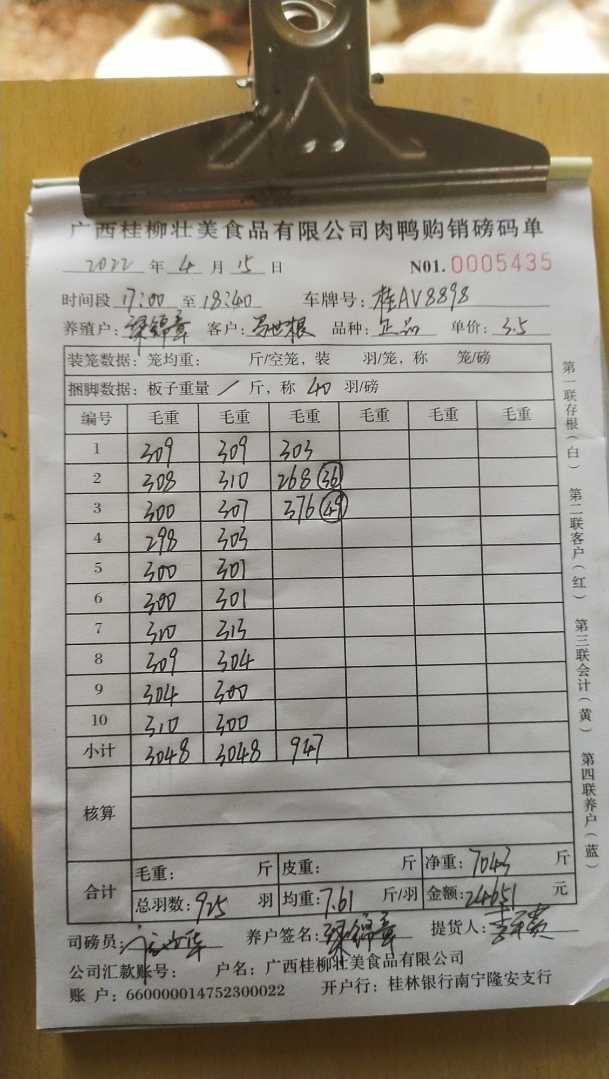 广西桂柳壮美食品有限公司肉鸭购销磅码单
2022 年 4 月 15 日 N01.0005435
时间段 17:00 至 18:40 车牌号: 桂AV8898
养殖户: 梁锦章 客户: 品种: 正品 单价: 3.5
装笼数据: 笼均重: 斤/空笼, 装 羽/笼, 称 笼/磅
捆脚数据: 板子重量 / 斤, 称 40 羽/磅
编号 毛重 毛重 毛重 毛重 毛重 毛重
1 309 309 303
2 308 310 268 (36)
3 300 307 376 (49)
4 298 303
5 300 301
6 300 301
7 310 313
8 309 304
9 304 300
10 310 300
小计 3048 3048 947
核算
合计 毛重: 斤 皮重: 斤 净重: 7043 斤
总羽数: 925 羽 均重: 7.61 斤/羽 金额: 24651 元
司磅员: 养户签名: 梁锦章 提货人:
公司汇款账号: 户名: 广西桂柳壮美食品有限公司
账 户: 660000014752300022 开户行: 桂林银行南宁隆安支行
第一联存根(白) 第二联客户(红) 第三联会计(黄) 第四联养户(蓝)